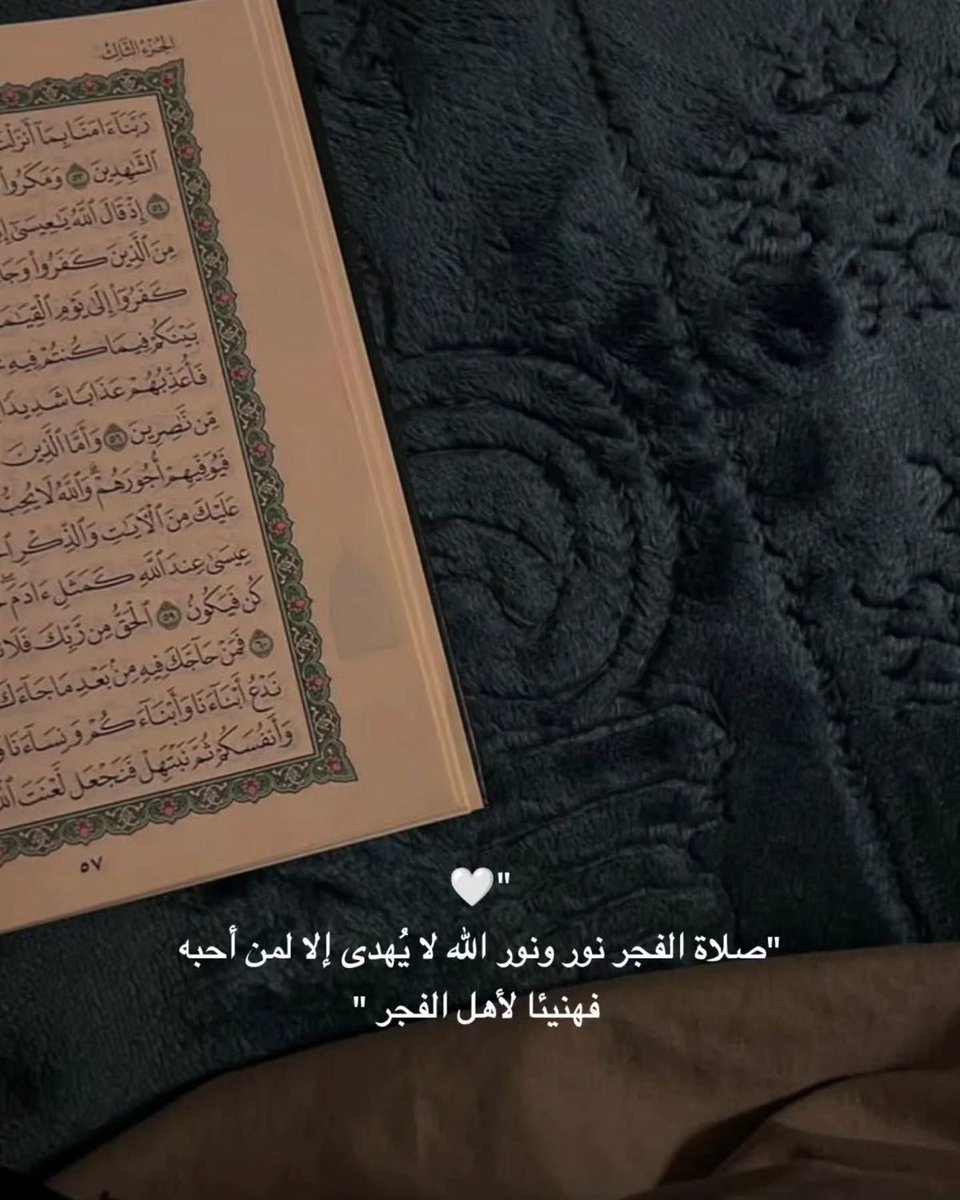 الجزء الثالث
رَبَّنَآ ءَامَنَّا بِمَآ أَنزَلْتَ
ٱلشَّٰهِدِينَ ٥٣ وَمَكَرُوا۟
٥٤ إِذْ قَالَ ٱللَّهُ يَٰعِيسَىٰٓ
مِنَ ٱلَّذِينَ كَفَرُوا۟
كَفَرُوٓا۟ إِلَىٰ يَوْمِ
بَيْنَكُمْ فِيمَا كُنتُمْ فِيهِ
فَأُعَذِّبُهُمْ عَذَابًا شَدِيدًا
مِّن نَّٰصِرِينَ ٥٦ وَأَمَّا ٱلَّذِينَ
فَيُوَفِّيهِمْ أُجُورَهُمْ ۗ وَٱللَّهُ لَا يُحِبُّ
عَلَيْكَ مِنَ ٱلْءَايَٰتِ وَٱلذِّكْرِ
عِيسَىٰ عِندَ ٱللَّهِ كَمَثَلِ ءَادَمَ ۖ
كُن فَيَكُونُ ٥٩ ٱلْحَقُّ مِن رَّبِّكَ فَلَا
٦٠ فَمَنْ حَآجَّكَ فِيهِ مِنۢ بَعْدِ مَا جَآءَكَ
نَدْعُ أَبْنَآءَنَا وَأَبْنَآءَكُمْ وَنِسَآءَنَا
وَأَنفُسَكُمْ ثُمَّ نَبْتَهِلْ فَنَجْعَل لَّعْنَتَ
٥٧
"🤍
"صلاة الفجر نور ونور الله لا يُهدى إلا لمن أحبه
فهنيئا لأهل الفجر "